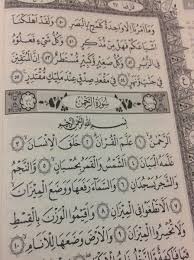 وَمَا أَمْرُنَا إِلَّا وَاحِدَةٌ كَلَمْحٍ بِالْبَصَرِ ٥٠ وَلَقَدْ أَهْلَكْنَا
أَشْيَاعَكُمْ فَهَلْ مِن مُّدَّكِرٍ ٥١ وَكُلُّ شَيْءٍ فَعَلُوهُ
فِي الزُّبُرِ ٥٢ وَكُلُّ صَغِيرٍ وَكَبِيرٍ مُّسْتَطَرٌ ٥٣ إِنَّ الْمُتَّقِينَ
فِي جَنَّاتٍ وَنَهَرٍ ٥٤ فِي مَقْعَدِ صِدْقٍ عِندَ مَلِيكٍ مُّقْتَدِرٍ ٥٥
سُورَةُ الرَّحْمَٰن
بِسْمِ اللَّهِ الرَّحْمَٰنِ الرَّحِيمِ
الرَّحْمَٰنُ ١ عَلَّمَ الْقُرْآنَ ٢ خَلَقَ الْإِنسَانَ ٣
عَلَّمَهُ الْبَيَانَ ٤ الشَّمْسُ وَالْقَمَرُ بِحُسْبَانٍ ٥ وَالنَّجْمُ
وَالشَّجَرُ يَسْجُدَانِ ٦ وَالسَّمَاءَ رَفَعَهَا وَوَضَعَ الْمِيزَانَ
٧ أَلَّا تَطْغَوْا فِي الْمِيزَانِ ٨ وَأَقِيمُوا الْوَزْنَ بِالْقِسْطِ
وَلَا تُخْسِرُوا الْمِيزَانَ ٩ وَالْأَرْضَ وَضَعَهَا لِلْأَنَامِ ١٠